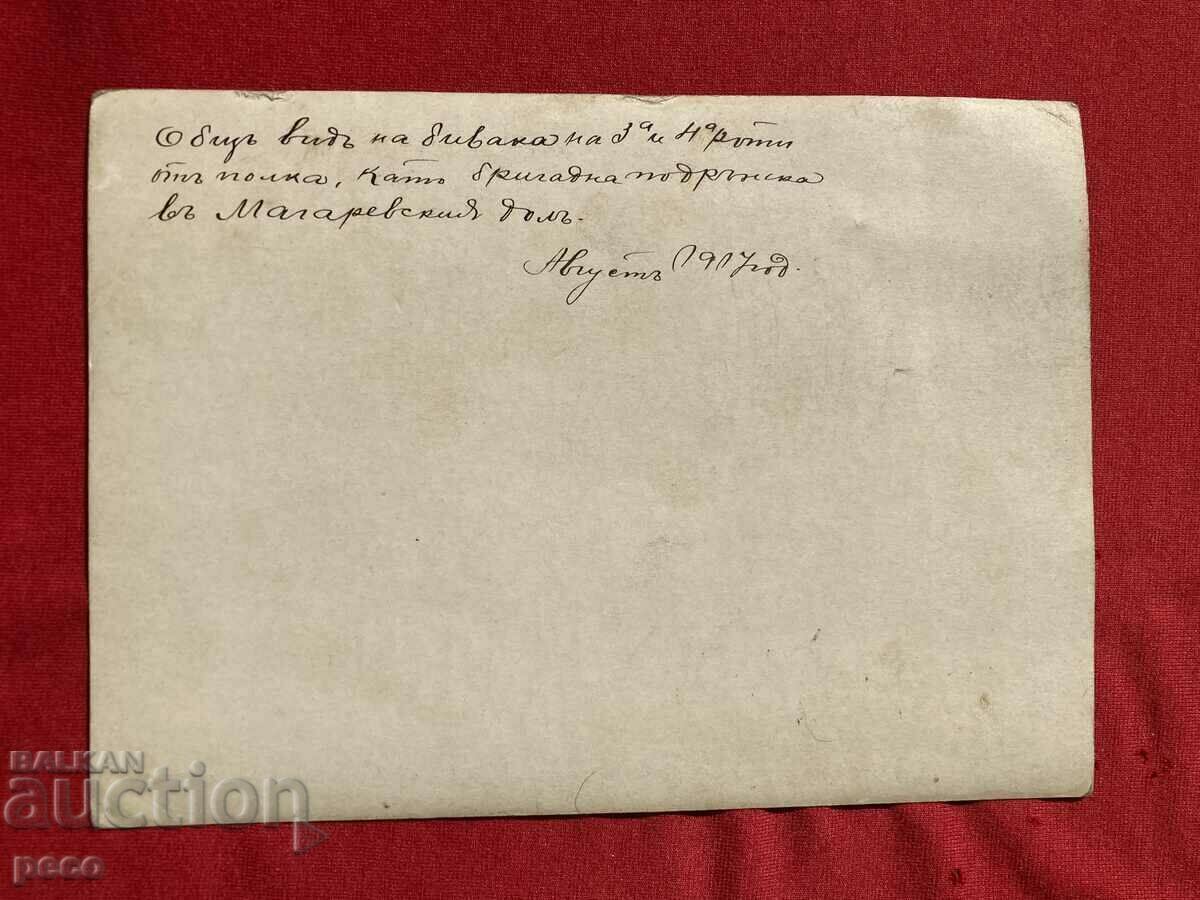 Общъ видъ на бивака на 3а и 4а роти
отъ полка, като бригадна подръжка
въ Магаревския долъ.
Августъ 1917 год.
BALKAN
auction
peco